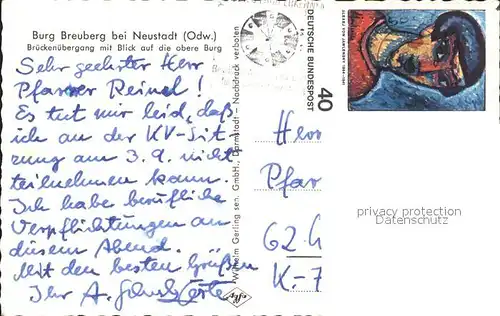 Burg Breuberg bei Neustadt (Odw.)
Brückenübergang mit Blick auf die obere Burg
Sehr geehrter Herr
Pfarrer Reinel!
Es tut mir leid, daß
ich an der KV-Sit-
zung am 3.9. nicht
teilnehmen kann.
Ich habe berufliche
Verpflichtungen an
diesem Abend.
Mit den besten Grüßen
Ihr A.
Wilhelm Gerling sen. GmbH., Darmstadt - Nachdruck verboten
DEUTSCHE BUNDESPOST
40
Herr
Pfar
62
K-7
privacy protection
Datenschutz